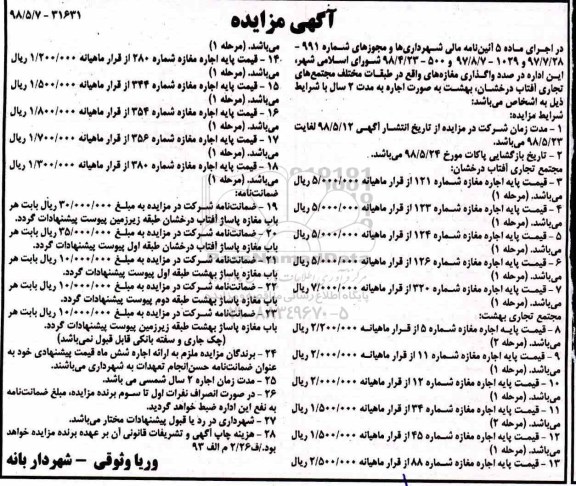 ۹۸/۵/۷ - ۳۱۶۳۱
آگهی مزایده
در اجرای ماده ۵ آئین‌نامه مالی شهرداری‌ها و مجوزهای شماره ۹۹۱ -
۹۷/۷/۲۸ و ۱۰۲۹ - ۹۷/۸/۷ و ۵۰۰ - ۹۸/۴/۲۳ شورای اسلامی شهر،
این اداره در صدد واگذاری مغازه‌های واقع در طبقات مختلف مجتمع‌های
تجاری آفتاب درخشان، بهشت به صورت اجاره به مدت ۲ سال با شرایط
ذیل به اشخاص می‌باشد:
شرایط مزایده:
۱ - مدت زمان شرکت در مزایده از تاریخ انتشار آگهی ۹۸/۵/۱۲ لغایت
۹۸/۵/۲۳ می‌باشد.
۲ - تاریخ بازگشایی پاکات مورخ ۹۸/۵/۲۴ می‌باشد.
مجتمع تجاری آفتاب درخشان:
۳ - قیمت پایه اجاره مغازه شماره ۱۲۱ از قرار ماهیانه ۵/۰۰۰/۰۰۰ ریال
می‌باشد. (مرحله ۱)
۴ - قیمت پایه اجاره مغازه شماره ۱۲۳ از قرار ماهیانه ۵/۰۰۰/۰۰۰ ریال
می‌باشد. (مرحله ۱)
۵ - قیمت پایه اجاره مغازه شماره ۱۲۴ از قرار ماهیانه ۵/۰۰۰/۰۰۰ ریال
می‌باشد. (مرحله ۱)
۶ - قیمت پایه اجاره مغازه شماره ۱۲۶ از قرار ماهیانه ۵/۰۰۰/۰۰۰ ریال
می‌باشد. (مرحله ۱)
۷ - قیمت پایه اجاره مغازه شماره ۳۲۰ از قرار ماهیانه ۷/۰۰۰/۰۰۰ ریال
می‌باشد. (مرحله ۱)
مجتمع تجاری بهشت:
۸ - قیمت پایه اجاره مغازه شماره ۵ از قرار ماهیانه ۲/۲۰۰/۰۰۰ ریال
می‌باشد. (مرحله ۲)
۹ - قیمت پایه اجاره مغازه شماره ۱۱ از قرار ماهیانه ۲/۰۰۰/۰۰۰ ریال
می‌باشد. (مرحله ۱)
۱۰ - قیمت پایه اجاره مغازه شماره ۱۲ از قرار ماهیانه ۲/۰۰۰/۰۰۰ ریال
می‌باشد. (مرحله ۱)
۱۱ - قیمت پایه اجاره مغازه شماره ۳۴ از قرار ماهیانه ۱/۵۰۰/۰۰۰ ریال
می‌باشد. (مرحله ۲)
۱۲ - قیمت پایه اجاره مغازه شماره ۴۵ از قرار ماهیانه ۱/۵۰۰/۰۰۰ ریال
می‌باشد. (مرحله ۱)
۱۳ - قیمت پایه اجاره مغازه شماره ۸۸ از قرار ماهیانه ۲/۵۰۰/۰۰۰ ریال
می‌باشد. (مرحله ۱)
۱۴ - قیمت پایه اجاره مغازه شماره ۲۸۰ از قرار ماهیانه ۱/۲۰۰/۰۰۰ ریال
می‌باشد. (مرحله ۱)
۱۵ - قیمت پایه اجاره مغازه شماره ۳۴۴ از قرار ماهیانه ۱/۵۰۰/۰۰۰ ریال
می‌باشد. (مرحله ۱)
۱۶ - قیمت پایه اجاره مغازه شماره ۳۵۴ از قرار ماهیانه ۱/۸۰۰/۰۰۰ ریال
می‌باشد. (مرحله ۱)
۱۷ - قیمت پایه اجاره مغازه شماره ۳۵۶ از قرار ماهیانه ۱/۷۰۰/۰۰۰ ریال
می‌باشد. (مرحله ۱)
۱۸ - قیمت پایه اجاره مغازه شماره ۳۸۰ از قرار ماهیانه ۱/۳۰۰/۰۰۰ ریال
می‌باشد. (مرحله ۱)
ضمانت‌نامه:
۱۹ - ضمانت‌نامه شرکت در مزایده به مبلغ ۳۰/۰۰۰/۰۰۰ ریال بابت هر
باب مغازه پاساژ آفتاب درخشان طبقه زیرزمین پیوست پیشنهادات گردد.
۲۰ - ضمانت‌نامه شرکت در مزایده به مبلغ ۳۵/۰۰۰/۰۰۰ ریال بابت هر
باب مغازه پاساژ آفتاب درخشان طبقه اول پیوست پیشنهادات گردد.
۲۱ - ضمانت‌نامه شرکت در مزایده به مبلغ ۱۰/۰۰۰/۰۰۰ ریال بابت هر
باب مغازه پاساژ بهشت طبقه اول پیوست پیشنهادات گردد.
۲۲ - ضمانت‌نامه شرکت در مزایده به مبلغ ۱۰/۰۰۰/۰۰۰ ریال بابت هر
باب مغازه پاساژ بهشت طبقه دوم پیوست پیشنهادات گردد.
۲۳ - ضمانت‌نامه شرکت در مزایده به مبلغ ۱۰/۰۰۰/۰۰۰ ریال بابت هر
باب مغازه پاساژ بهشت طبقه زیرزمین پیوست پیشنهادات گردد.
(چک جاری و سفته بانکی قابل قبول نمی‌باشد)
۲۴ - برندگان مزایده ملزم به ارائه اجاره شش ماه قیمت پیشنهادی خود به
عنوان ضمانت‌نامه حسن‌انجام تعهدات به شهرداری می‌باشند.
۲۵ - مدت زمان اجاره ۲ سال شمسی می باشد.
۲۶ - در صورت انصراف نفرات اول تا سوم برنده مزایده، مبلغ ضمانت‌نامه
به نفع این اداره ضبط خواهد گردید.
۲۷ - شهرداری در رد یا قبول پیشنهادات مختار می‌باشد.
۲۸ - هزینه چاپ آگهی و تشریفات قانونی آن بر عهده برنده مزایده خواهد
بود./ف۲/۲۶ م الف ۹۳
وریا وثوقی - شهردار بانه